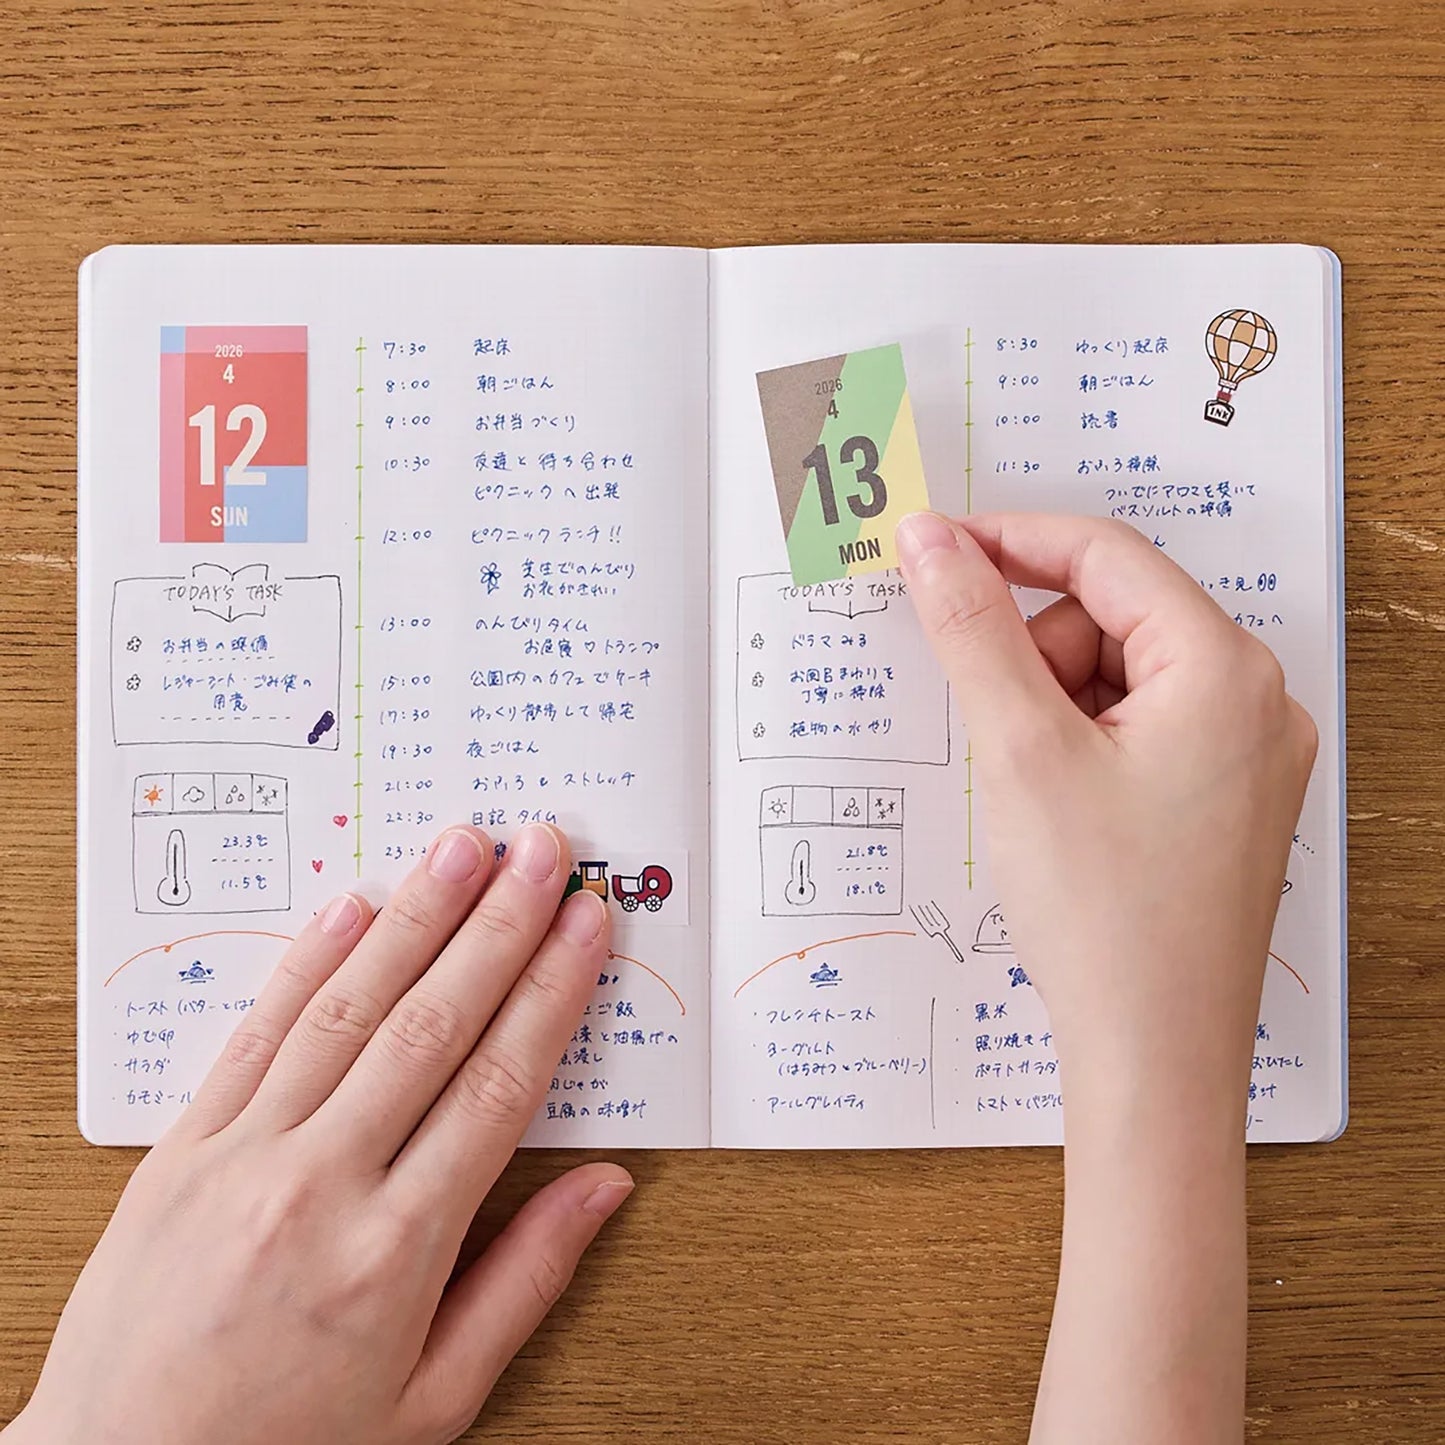 2026
4
12
SUN
7:30 起床
8:00 朝ごはん
9:00 お弁当づくり
10:30 友達と待ち合わせ
ピクニックへ出発
12:00 ピクニックランチ!!
芝生でのんびり
お花がきれい
13:00 のんびりタイム
お昼寝♡トランプ
15:00 公園内のカフェでケーキ
17:30 ゆっくり散歩して帰宅
19:30 夜ごはん
21:00 おふろとストレッチ
22:30 日記タイム
23:
TODAY'S TASK
お弁当の準備
レジャーシート・ごみ袋の
用意
23.3℃
11.5℃
・トースト(バターとはち
・ゆで卵
・サラダ
・カモミール
ご飯
と油揚げの
浸し
肉じゃが
豆腐の味噌汁
2026
4
13
MON
8:30 ゆっくり起床
9:00 朝ごはん
10:00 読書
11:30 おふろ掃除
ついでにアロマを焚いて
バスソルトの準備
ん
き見
カフェへ
INK
TODAY'S TASK
ドラマみる
お風呂まわりを
丁寧に掃除
植物の水やり
21.8℃
18.1℃
・フレンチトースト
・ヨーグルト
(はちみつとブルーベリー)
・アールグレイティ
・黒米
・照り焼きチ
・ポテトサラダ
・トマトとバジル
おひたし
噌汁
リー